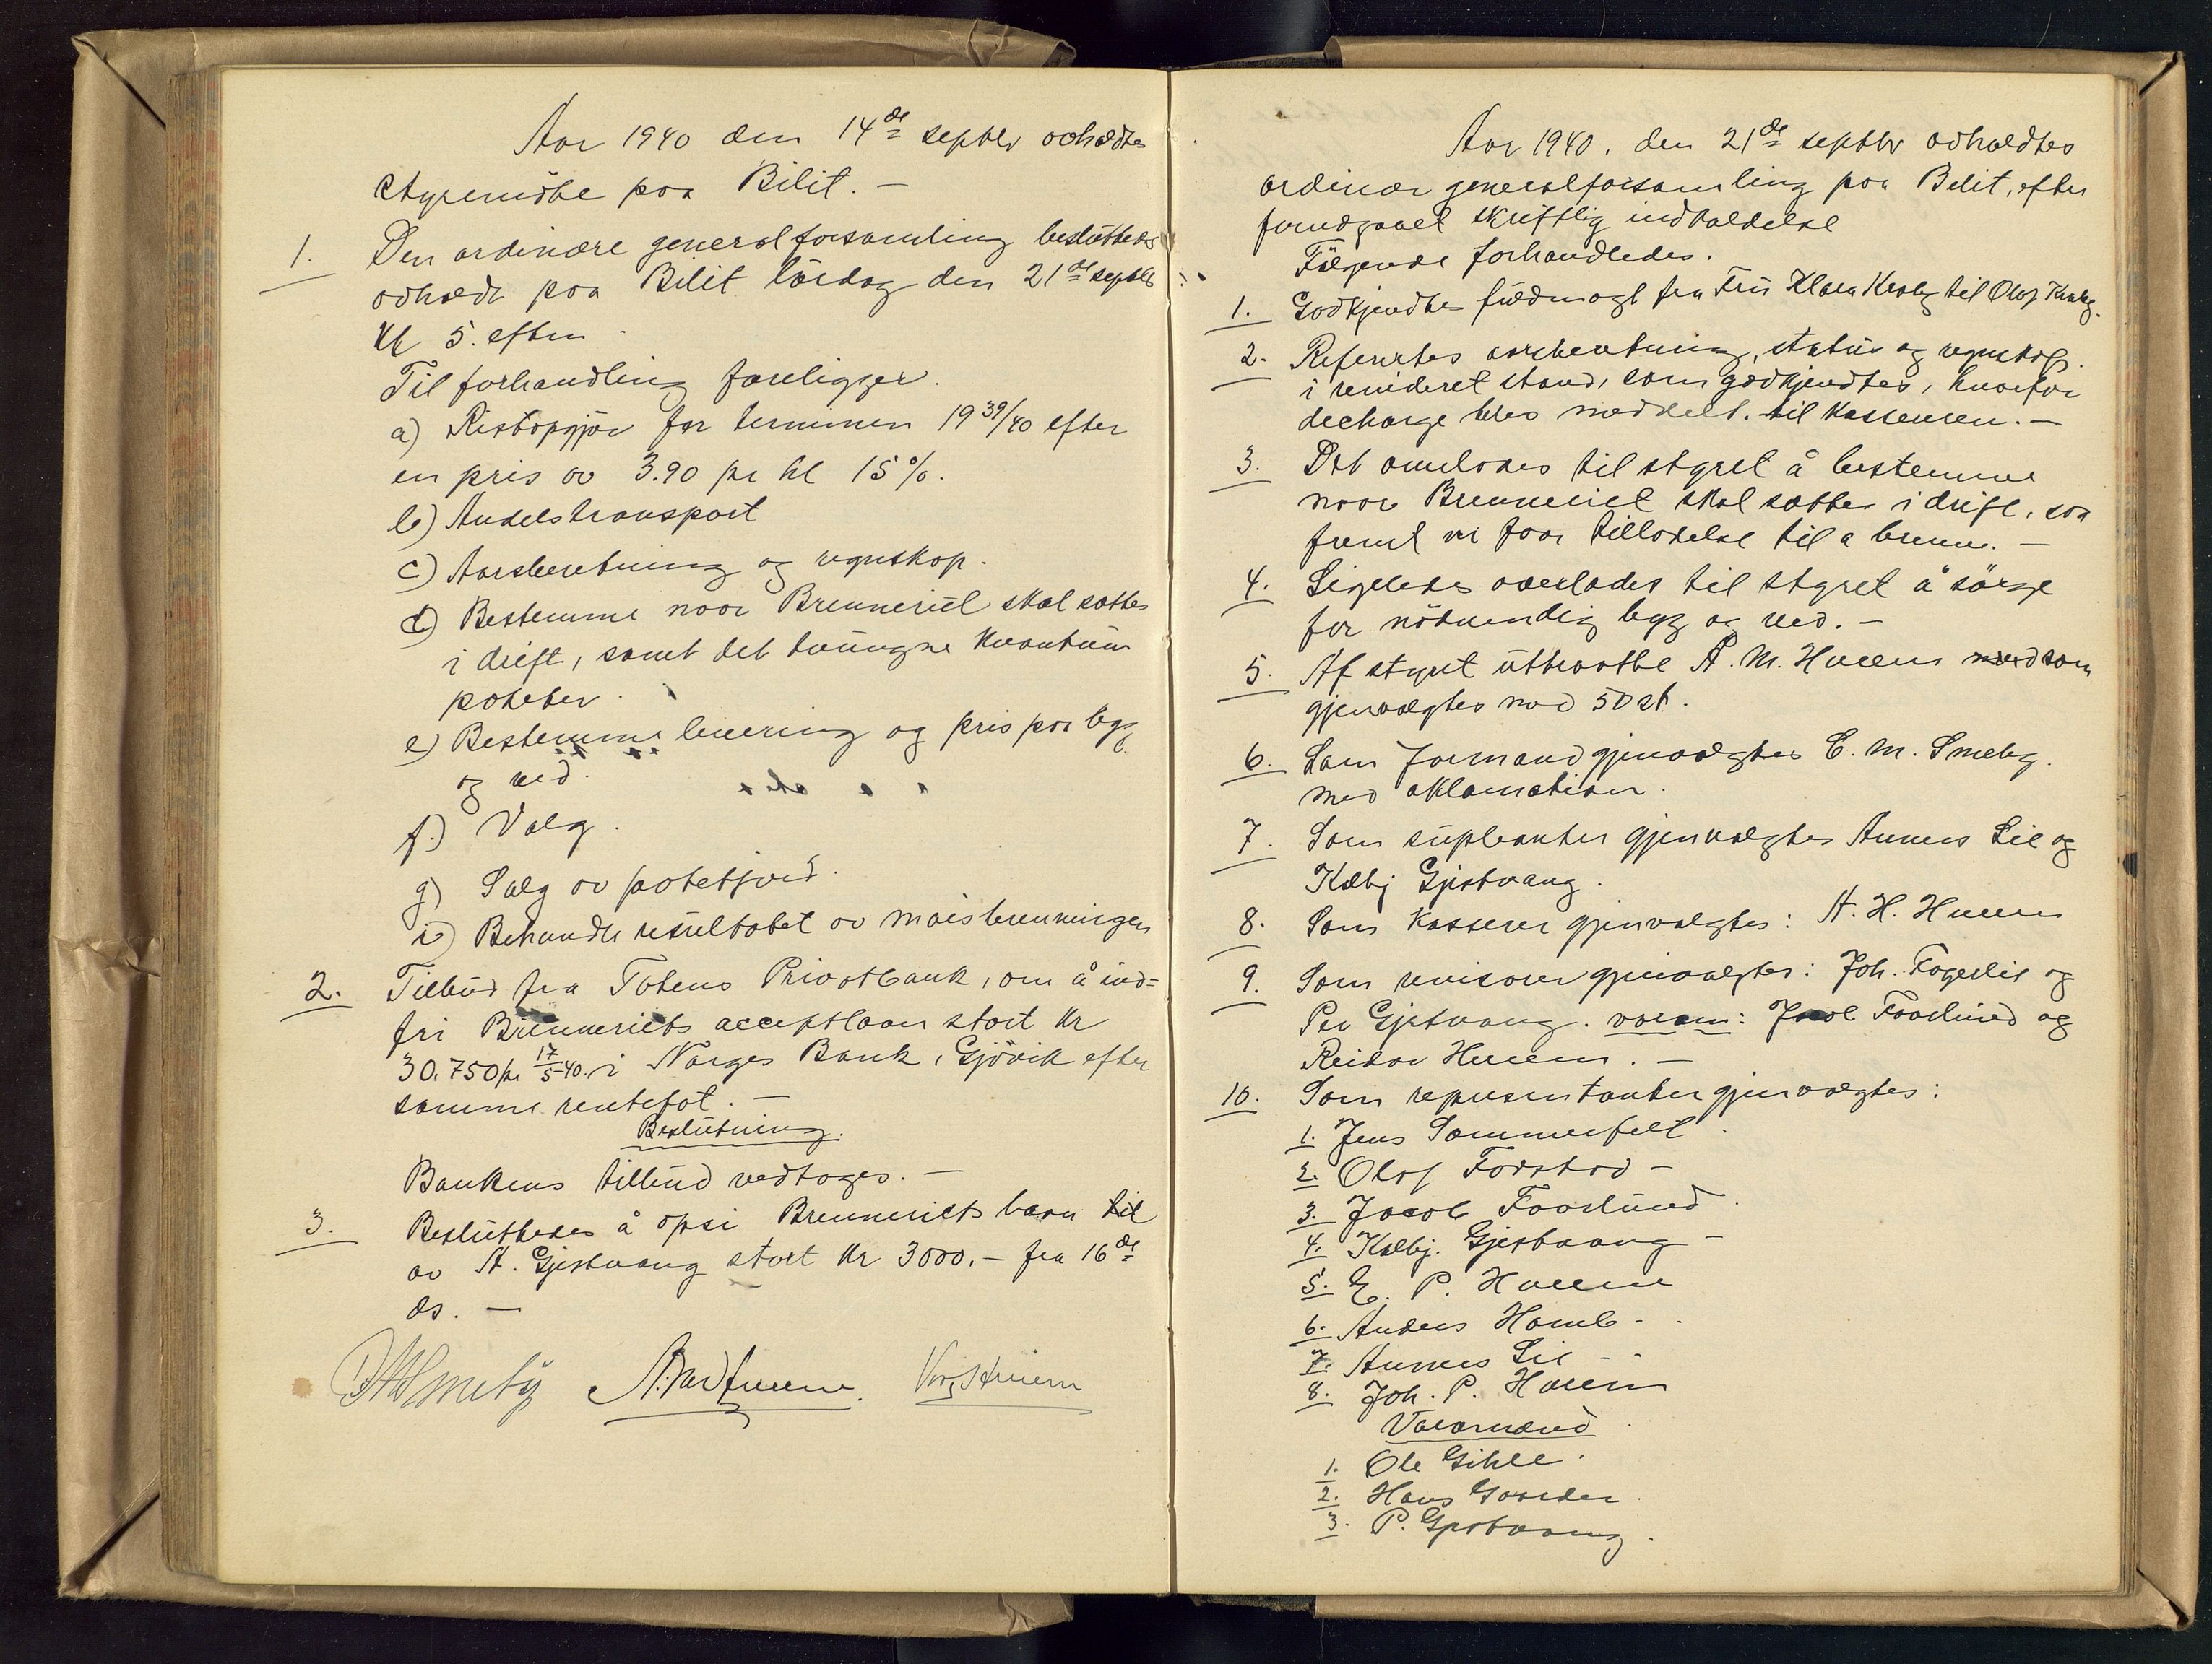 Aar 1940 den 14de septbr avholdtes
styremöte paa Bilit. —
1. Den ordinære generalforsamling besluttedes
avholdt paa Bilit lördag den 21de septbr
Kl 5. eftm
Til forhandling foreligger.
a) Restopgjör for terminen 1939/40 efter
en pris av 3.90 pr hl 15%.
b) Andelstransport
c) Aarsberetning og regnskap.
d) Bestemme naar Brenneriet skal sættes
i drift, samt det tvungne kvantum
poteter.
e) Bestemme levering og pris paa byg
og ved.
f.) Valg.
g) Salg av potetjord.
i) Behandle resultatet av maisbrenningen
2. Tilbud fra Totens Privatbank, om å ind=
fri Brenneriets acceptlaan stort Kr
30.750 pr 17/5-40. i Norges Bank, Gjövik efter
samme rentefot. —
Beslutning.
Bankens tilbud vedtoges. —
3. Besluttedes å opsi Brenneriets laan til
av A. Gjestvang stort Kr 3000.- fra 16de
ds. —
Aar 1940. den 21de septbr avholdtes
ordinær generalforsamling paa Bilit, efter
forudgaaet skriftlig indkaldelse
Fölgende forhandledes.
1. Godkjendtes fuldmagt fra Fru Klara Kraby til Olaf Kraby.
2. Refertes aarsberetning, status og regnskap.
i revideret stand, som godkjendtes, hvorfor
decharge blev meddelt. til kassereren. —
3. Det overlodes til styret å bestemme
naar Brenneriet skal sættes i drift, saa
fremt vi faar tilladelse til a brenne. —
4. Ligeledes overlodes til styret å sörge
for nödvendig byg og ved. —
5. Af styret uttraatte A. M. Hveem med som
gjenvalgtes med 50 st.
6. Som formand gjenvalgtes E. M. Smeby.
med aklamation.
7. Som supleanter gjenvalgtes Annæus Lie og
Kolbj Gjestvang.
8. Som kasserer gjenvalgtes: A. H. Hveem
9. Som revisorer gjenvalgtes: Joh. Fagerlie og
Per Gjestvang. varam: Jacob Faarlund og
Reidar Hveem. —
10. Som representanter gjenvalgtes:
1. Jens Sommerfelt.
2. Olaf Forstad —
3. Jacob Faarlund.
4. Kolbj. Gjestvang —
5. E. P. Hveem
6. Anders Homb -.
7. Annæus Lie —
8. Joh. P. Hveem
Varamænd.
1. Ole Gihle.
2. Hans Gaarder.
3. P. Gjestvang.